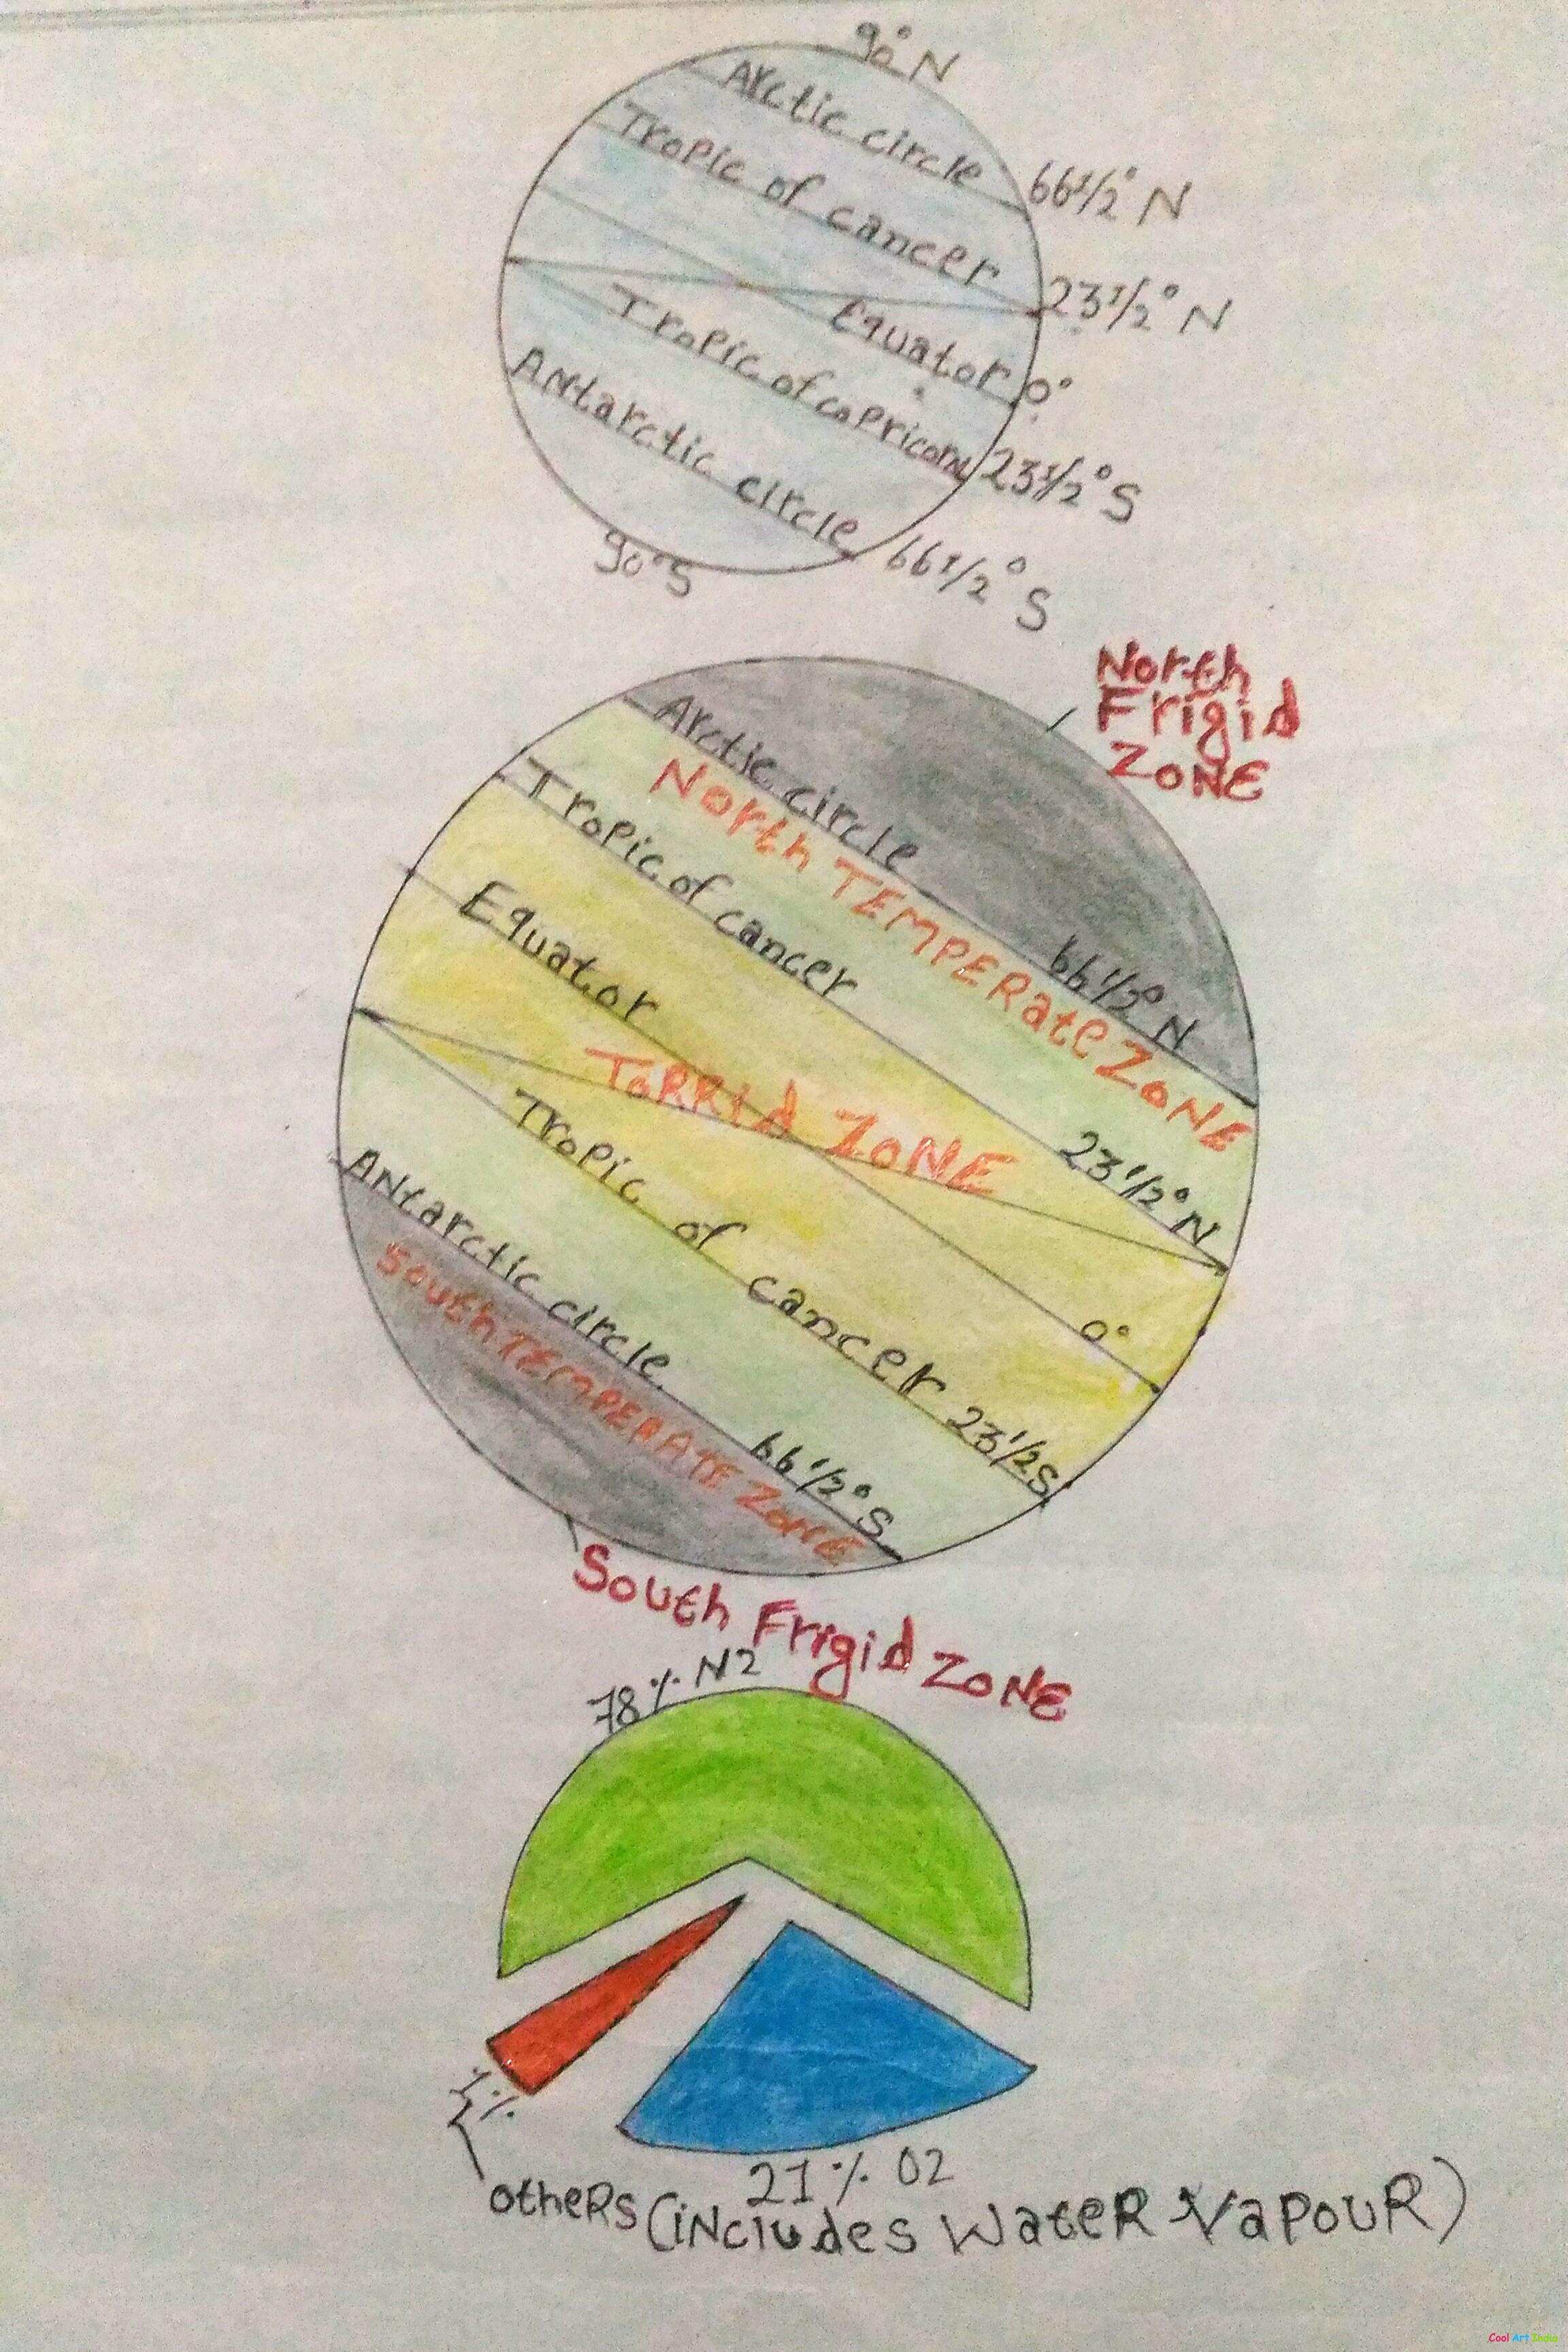 90° N
Arctic circle
66 1/2° N
Tropic of cancer
23 1/2° N
Equator 0°
Tropic of capricorn 23 1/2° S
Antarctic circle 66 1/2° S
90°S
North
Frigid
ZONE
Arctic circle 66 1/2° N
North TEMPERate ZONE
Tropic of cancer 23 1/2° N
Equator 0°
TORRId ZONE
Tropic of cancer 23 1/2 S
Antarctic circle 66 1/2° S
South TEMPERATE ZONE
South Frigid ZONE
78% N2
1%
21% O2
otheRs (iNcludes WateR VaPouR)
Cool Art India